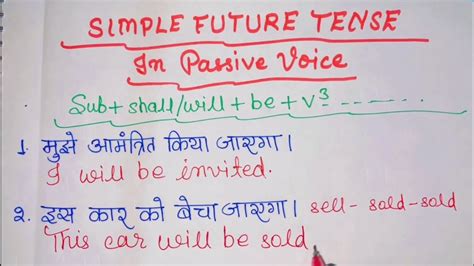 SIMPLE FUTURE TENSE
In Passive Voice
Sub + shall/will + be + V³ ------
1. मुझे आमंत्रित किया जाएगा।
I will be invited.
2. इस कार को बेचा जाएगा। sell - sold - sold
This car will be sold